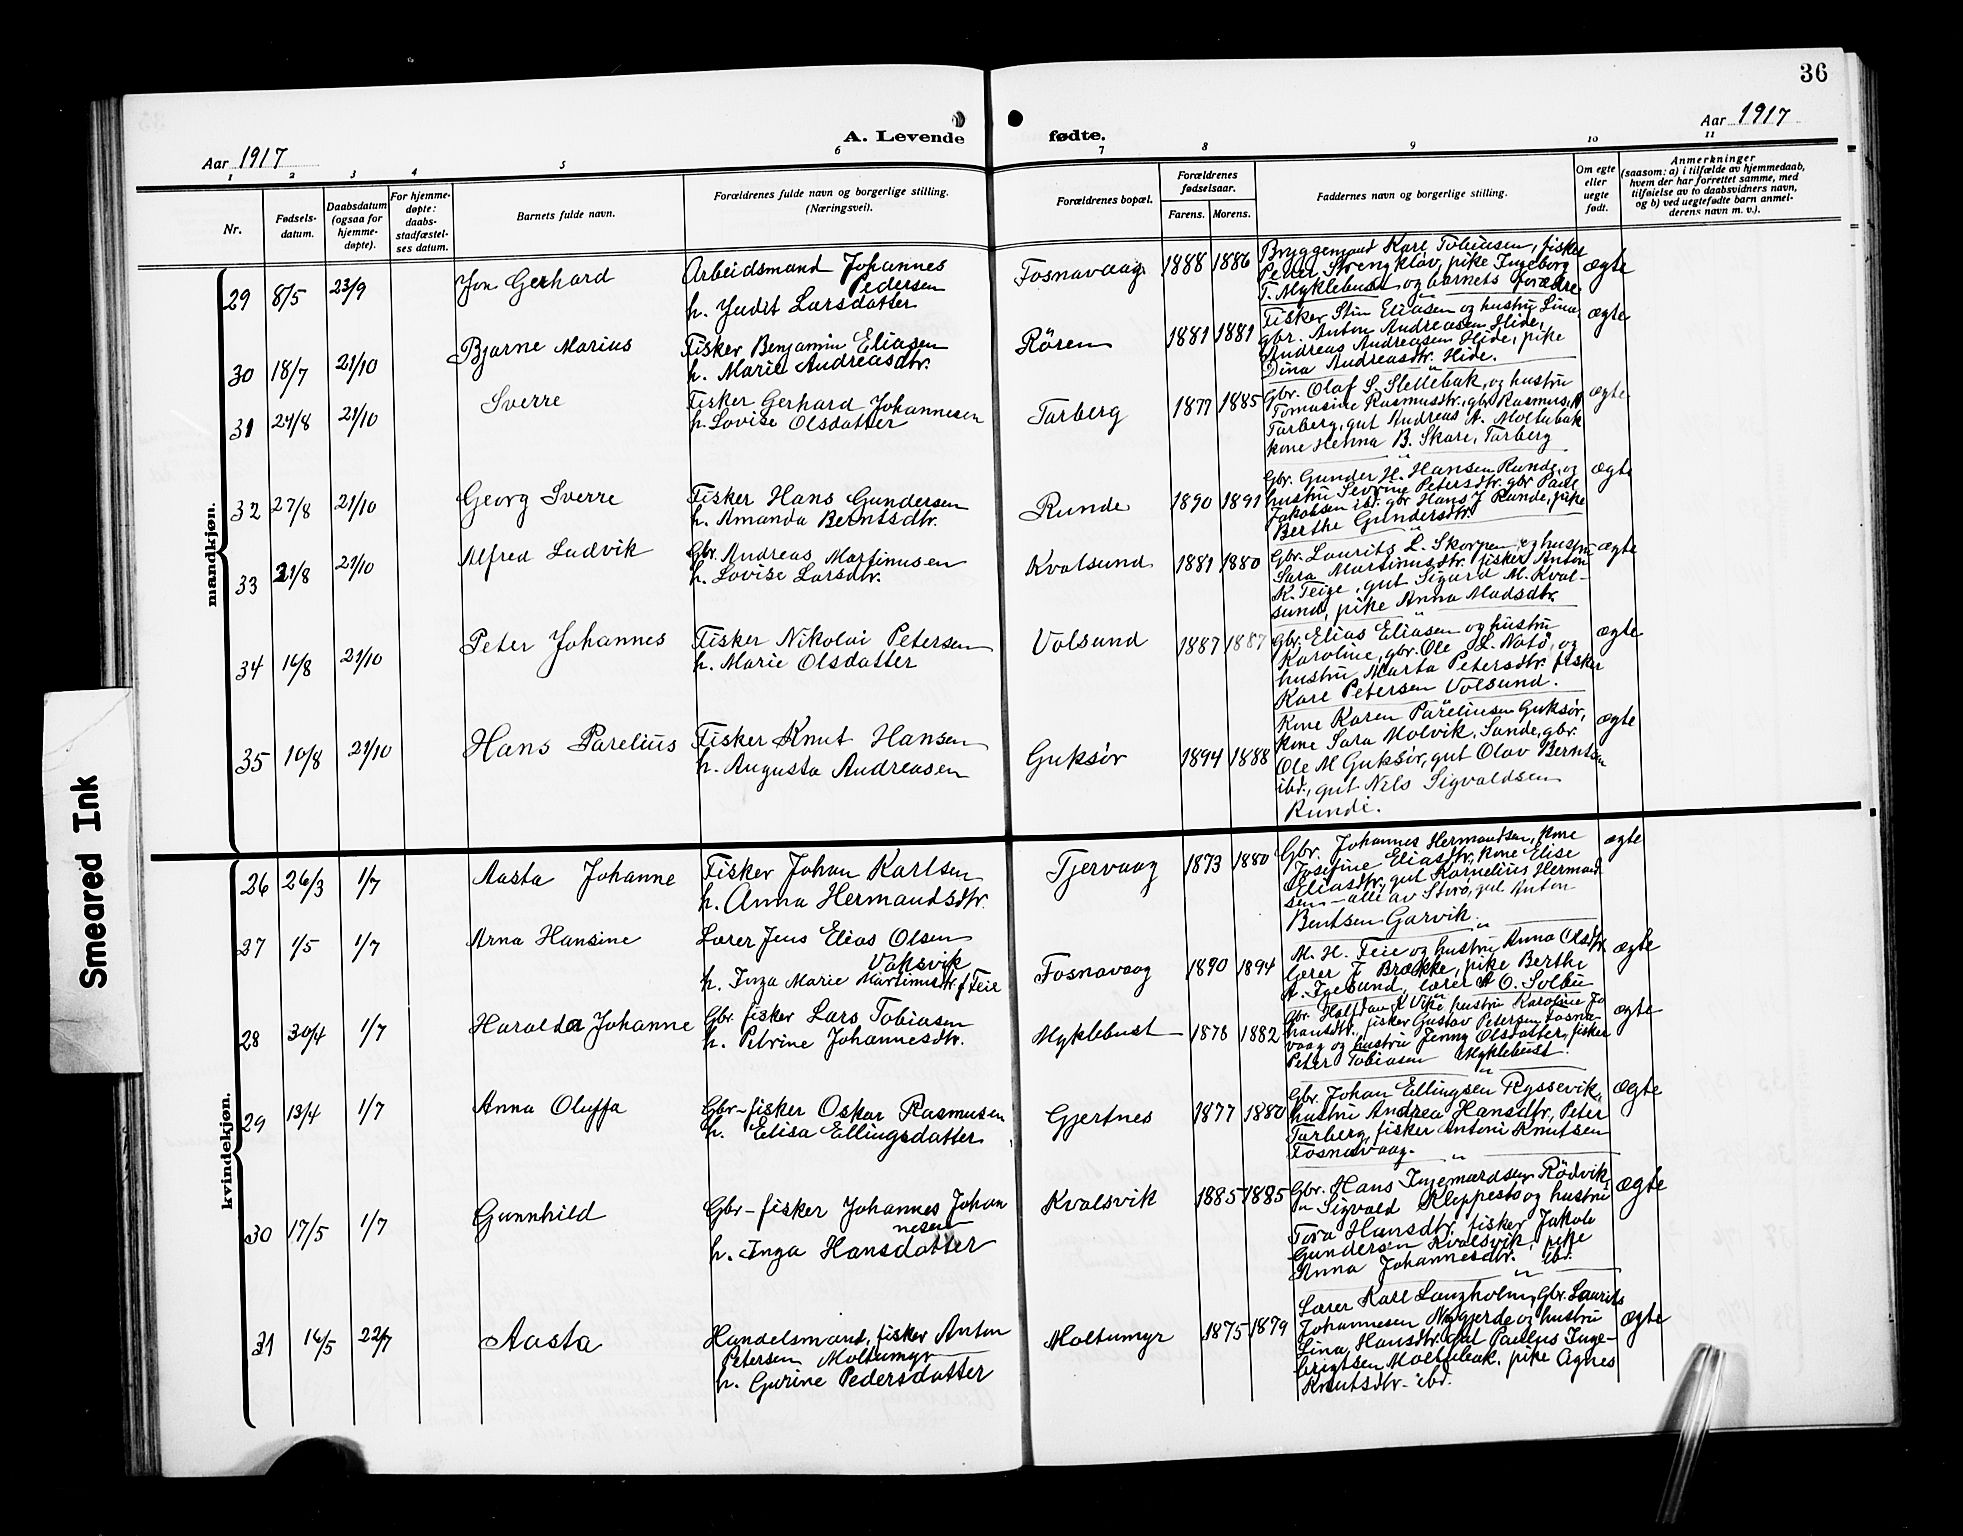 36
A. Levende fødte.
Aar 1917
Aar 1917
1 2 3 4 5 6 7 8 9 10 11
Nr.
Fødsels-
datum.
Daabsdatum
(ogsaa for
hjemme-
døpte).
For hjemme-
døpte:
daabs-
stadfæstel-
ses datum.
Barnets fulde navn.
Forældrenes fulde navn og borgerlige stilling.
(Næringsvei).
Forældrenes bopæl.
Forældrenes
fødselsaar.
Farens. Morens.
Faddernes navn og borgerlige stilling.
Om egte
eller
uegte
født.
Anmerkninger
(saasom: a) i tilfælde av hjemmedaab,
hvem der har forrettet samme, med
tilføielse av to daabsvidners navn,
og b) ved uegtefødte barn anmel-
derens navn m. v.).
mandkjøn.
29 8/5 23/9 Jon Gerhard
Arbeidsmand Johannes
Pedersen
h. Judit Larsdatter
Fosnavaag 1888 1886
Bryggemand Karl Tobiasen, fisker
Peder Strengkløv, pike Ingeborg
T. Myklebust og barnets forældre
ægte
30 18/7 21/10 Bjarne Marius
Fisker Benjamin Eliasen
h. Marie Andreasdtr.
Røren 1881 1881
Fisker Stin Eliasen og hustru Lina,
gbr. Anton Andreasen Hide,
Andreas Andreasen Hide, pike
Dina Andreasdtr. Hide.
ægte
31 24/8 21/10 Sverre
Fisker Gerhard Johannesen
h. Lovise Olsdatter
Tarberg 1877 1885
Gbr. Olaf S. Slettebak, og hustru
Tomasine Rasmusdtr., gbr Rasmus A
Tarberg, gut Andreas A. Moltubak
kone Henna B. Skare, Tarberg
ægte
32 27/8 21/10 Georg Sverre
Fisker Hans Gundersen
h. Amanda Berntsdtr.
Runde 1890 1891
Gbr. Gunder H. Hansen Runde, og
hustru Sevrine Petersdtr. gbr Paul
Jakobsen ib. gbr Hans J Runde, pike
Berthe Gundersdtr.
ægte
33 21/8 21/10 Alfred Ludvik
Gbr. Andreas Martinusen
h. Lovise Larsdtr.
Kvalsund 1881 1880
Gbr. Laurits L. Skorpen, og hustru
Sara Martinusdtr. fisker Anton
K. Teige, gut Sigurd M. Kval-
sund, pike Anna Madsdtr.
ægte
34 16/8 21/10 Peter Johannes
Fisker Nikolai Petersen
h. Marie Olsdatter
Volsund 1887 1887
Gbr. Elias Eliasen og hustru
Karoline, gbr. Ole L. Nøtø, og
hustru Marta Petersdtr. fisker
Karl Petersen Volsund.
ægte
35 10/8 21/10 Hans Parelius
Fisker Knut Hansen
h. Augusta Andreasen
Guksør 1894 1888
Kone Karen Pareliusen Guksør,
kone Sara Molvik, Sande, gbr.
Ole M Guksør, gut Olav Berntsen
ibd., gut Nils Sigvaldsen
Runde.
ægte
kvindekjøn.
26 26/3 1/7 Aasta Johanne
Fisker Johan Karlsen
h. Anna Hermandsdtr.
Tjervaag 1873 1880
Gbr. Johannes Hermandsen, kone
Josefine Eliasdtr, kone Elise
Eliasdtr., gut Kornelius Hermand
sen - alle av Storø, gut Anton
Bentsen Garvik.
ægte
27 1/5 1/7 Arna Hansine
Lærer Jens Elias Olsen
Vaksvik
h. Inga Marie Martinusdtr. f. Teie
Fosnavaag 1890 1894
M. H. Teie og hustru Anna Olsdtr,
lærer J Brække, pike Berthe
A. Igesund, lærer A O. Solbu
ægte
28 30/4 1/7 Haralda Johanne
Gbr. fisker Lars Tobiasen
h. Petrine Johannesdtr.
Myklebust 1878 1882
gbr. Halfdan K Vike, hustru Karoline Jo
hansdtr., fisker Gustav Petersen Fosna-
vaag og hustru Jenny Olsdatter, fisker
Peter Tobiasen Myklebust.
ægte
29 13/4 1/7 Anna Oluffa
Gbr-fisker Oskar Rasmusen
h. Elisa Ellingsdatter
Gjertnes 1877 1880
Gbr. Johan Ellingsen Ryssevik,
hustru Andrea Hansdtr., Peter
Tarberg, fisker Antoni Knutsen
Fosnavaag.
ægte
30 17/5 1/7 Gunnhild
Gbr-fisker Johannes Johan
nesen
h. Inga Hansdatter
Kvalsvik 1885 1885
Gbr. Hans Ingemardsen Rødvik,
Sigvald Kleppestø og hustru
Tora Hansdtr., fisker Jakob
Gundersen Kvalsvik, pike
Anna Johannesdtr. ibd.
ægte
31 16/5 22/7 Aasta
Handelsmand, fisker Anton
Petersen Moltumyr
h. Gurine Pedersdatter
Moltumyr 1875 1879
Lærer Karl Langholm, Gbr. Laurits
Johannesen Nygjerde og hustru
Lina Hansdtr. gut Paulus Inge-
brigtsen Moltubak, pike Agnes
Knutsdtr. ibd.
ægte
Smeared Ink